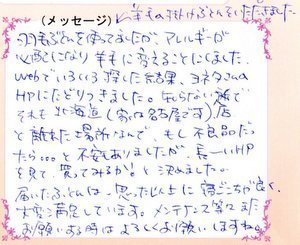 (メッセージ) 羊毛の掛けぶとんをいただきました
羽毛ぶとんを使ってましたが、アレルギーが
心配になり羊毛に変えることにしました。
webでいろいろ探した結果、ヨネタさんの
HPにたどりつきました。知らない店で
それも北海道(家は名古屋です)店
と離れた場所なんで、もし不良品だっ
たら。。。と不安もありましたが、長〜いHP
を見て、買ってみるか!と決めました。
届いたふとんは、思った以上に寝ごこちが良く、
大変満足しています。メンテナンス等でまた
お願いする時はよろしくお願いしますね。